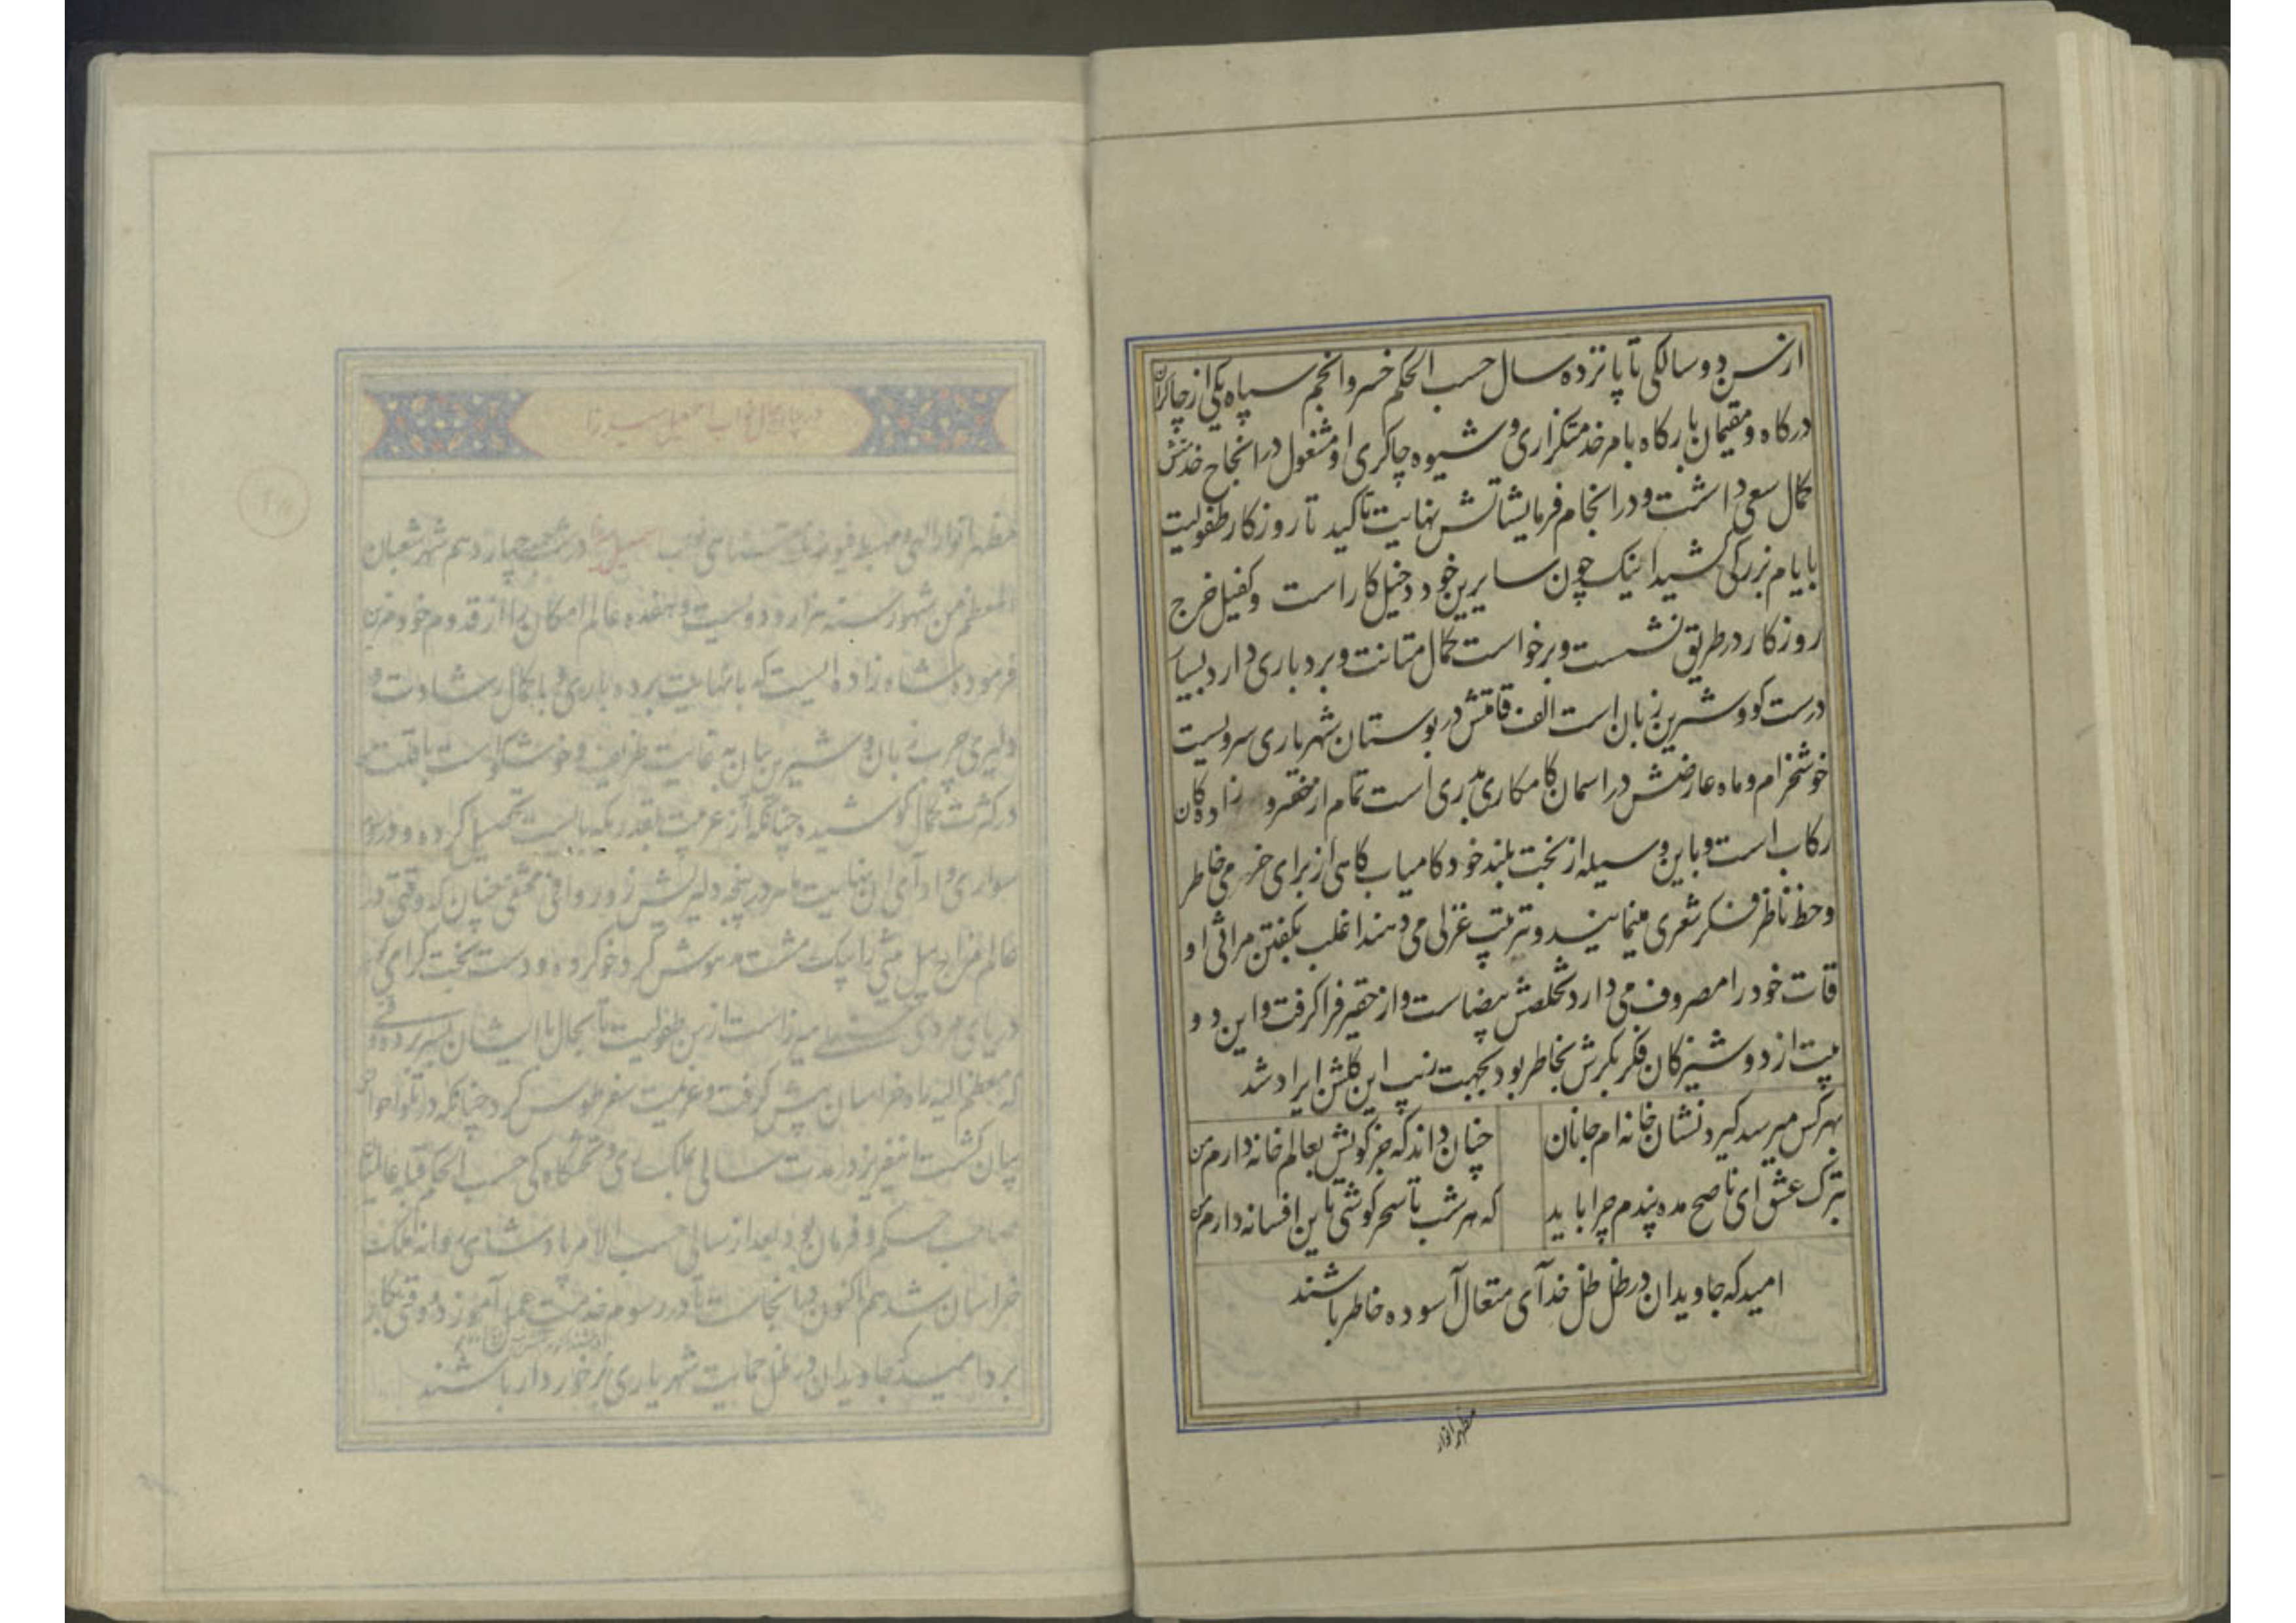 از سن دو سالکی تا پانزده سال حسب الحکم خسرو انجم سپاه یکی از چاکران
درکاه و مقیمان بارکاه بامر خدمتکزاری و شیوه چاکری او مشغول در انجاح خدمتش
کمال سعی داشت و در انجام فرمایشاتش نهایت تاکید تا روزکار طفولیت
بایام بزرکی کشید اینک چون سایرین خود دخیل کار است و کفیل خرج
روزکار در طریق نشست و برخواست کمال متانت و بردباری دارد بسیار
درست کو و شیرین زبان است الف قامتش در بوستان شهریاری سرویست
خوشخرام و ماه عارضش در اسمان کامکاری بدری است تمام از مفتر و زاده کان
رکاب است و باین وسیله از بخت بلند خود کامیاب کاهی از برای خرمی خاطر
و حظ ناظر فکر شعری مینمایند و ترتیب غزلی می دهند اغلب بکفتن مراثی او
قات خود را مصروف می دارد تخلصش بیضاست و از حقیر فرا کرفت و این دو
بیت از دوشیزکان فکر بکرش بخاطر بود بجهت زیب این کلشن ایراد شد
بهر کس میرسد کیرد نشان خانه ام جانان چنان داند که جز کویش بعالم خانه دارم من
بترک عشق ای ناصح مده پندم چرا باید که هر شب تا سحر کوشی باین افسانه دارم من
امید که جاویدان در ظل ظل خدآی متعال آسوده خاطر باشند
مظهر انوار
در بیان حال نواب اسمعیل میرزا
مظهر انوار الهی و مهبط فیوضات نواب اسمعیل میرزا در شب چهاردهم شهر شعبان
المعظم من شهور سنه هزار و دویست و هفده عالم امکان را از قدوم خود مزین
فرموده شاه زاده ایست که با نهایت بردباری و با کمال رشادت و
دلیری چرب زبان و شیرین بیان به غایت ظریف و خوشکو است
در کثرت کمال کوشیده چنانکه از عربیت بقدریکه بایست تحصیل کرده و در
سواری و ادآی ان نهایت ماهر در پنجه دلیریش زور وافی مخفی چنان که وقتی در
عالم مزاح پیل را بیک مشت
دریای مردی میرزاست از سن طفولیت تا بحال با ایشان بسر برده
که معظم الیه راه خراسان پیش کرفت و عزیمت سفر طوس کرد چنانکه در
بیان کشت در مدت سالی بملک ری و تختکاه کی حسب الحکم قبله عالمیان
صاحب حکم و فرمان بود بعد از سالی حسب الامر پادشاهی روانه ملکت
خراسان شد هم اکنون در انجاست تا در رسوم خدمت آموزد و وقتی بکار
برد امید که جاویدان در ظل حمایت شهریاری برخوردار باشند